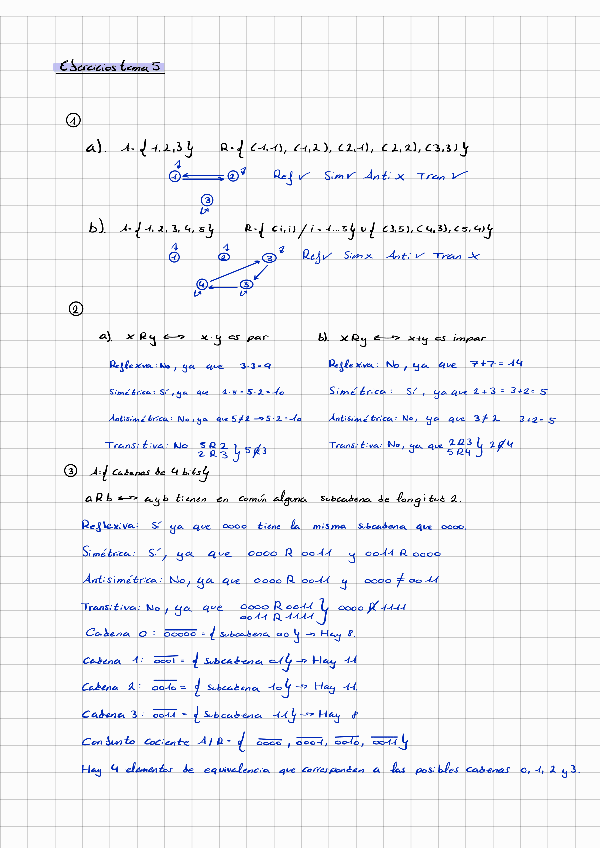 Ejercicios tema 5
①
a). A={1,2,3} R={(1,1), (1,2), (2,1), (2,2), (3,3)}
1 2 Ref ✓ Sim ✓ Anti x Tran ✓
3
b). A={1,2,3,4,5} R={(i,i)/i=1...5} ∪ {(3,5), (4,3), (5,4)}
1 2 3 Ref ✓ Sim x Anti ✓ Tran x
4
②
a). xRy ⟷ x·y es par b). xRy ⟷ x+y es impar
Reflexiva: No, ya que 3·3=9 Reflexiva: No, ya que 7+7=14
Simétrica: Sí, ya que 2·5=5·2=10 Simétrica: Sí, ya que 2+3=3+2=5
Antisimétrica: No, ya que 5≠2 → 5·2=10 Antisimétrica: No, ya que 3≠2 3+2=5
Transitiva: No 5R2 2R3 } 5R̸3 Transitiva: No, ya que 2R3 5R4 } 2R̸4
③ A={Cadenas de 4 bits}
aRb ⟷ a y b tienen en común alguna subcadena de longitud 2.
Reflexiva: Sí ya que 0000 tiene la misma subcadena que 0000.
Simétrica: Sí, ya que 0000 R 0011 y 0011 R 0000
Antisimétrica: No, ya que 0000 R 0011 y 0000 ≠ 0011
Transitiva: No, ya que 0000 R 0011 0011 R 1111 } 0000 R̸ 1111
Cadena 0: 00000 = {subcadena 00} → Hay 8.
Cadena 1: 0001 = {subcadena 01} → Hay 11
Cadena 2: 0010 = {subcadena 10} → Hay 11.
Cadena 3: 0011 = {subcadena 11} → Hay 8
Conjunto cociente A/R = {0000, 0001, 0010, 0011}
Hay 4 elementos de equivalencia que corresponden a las posibles cadenas 0, 1, 2 y 3.